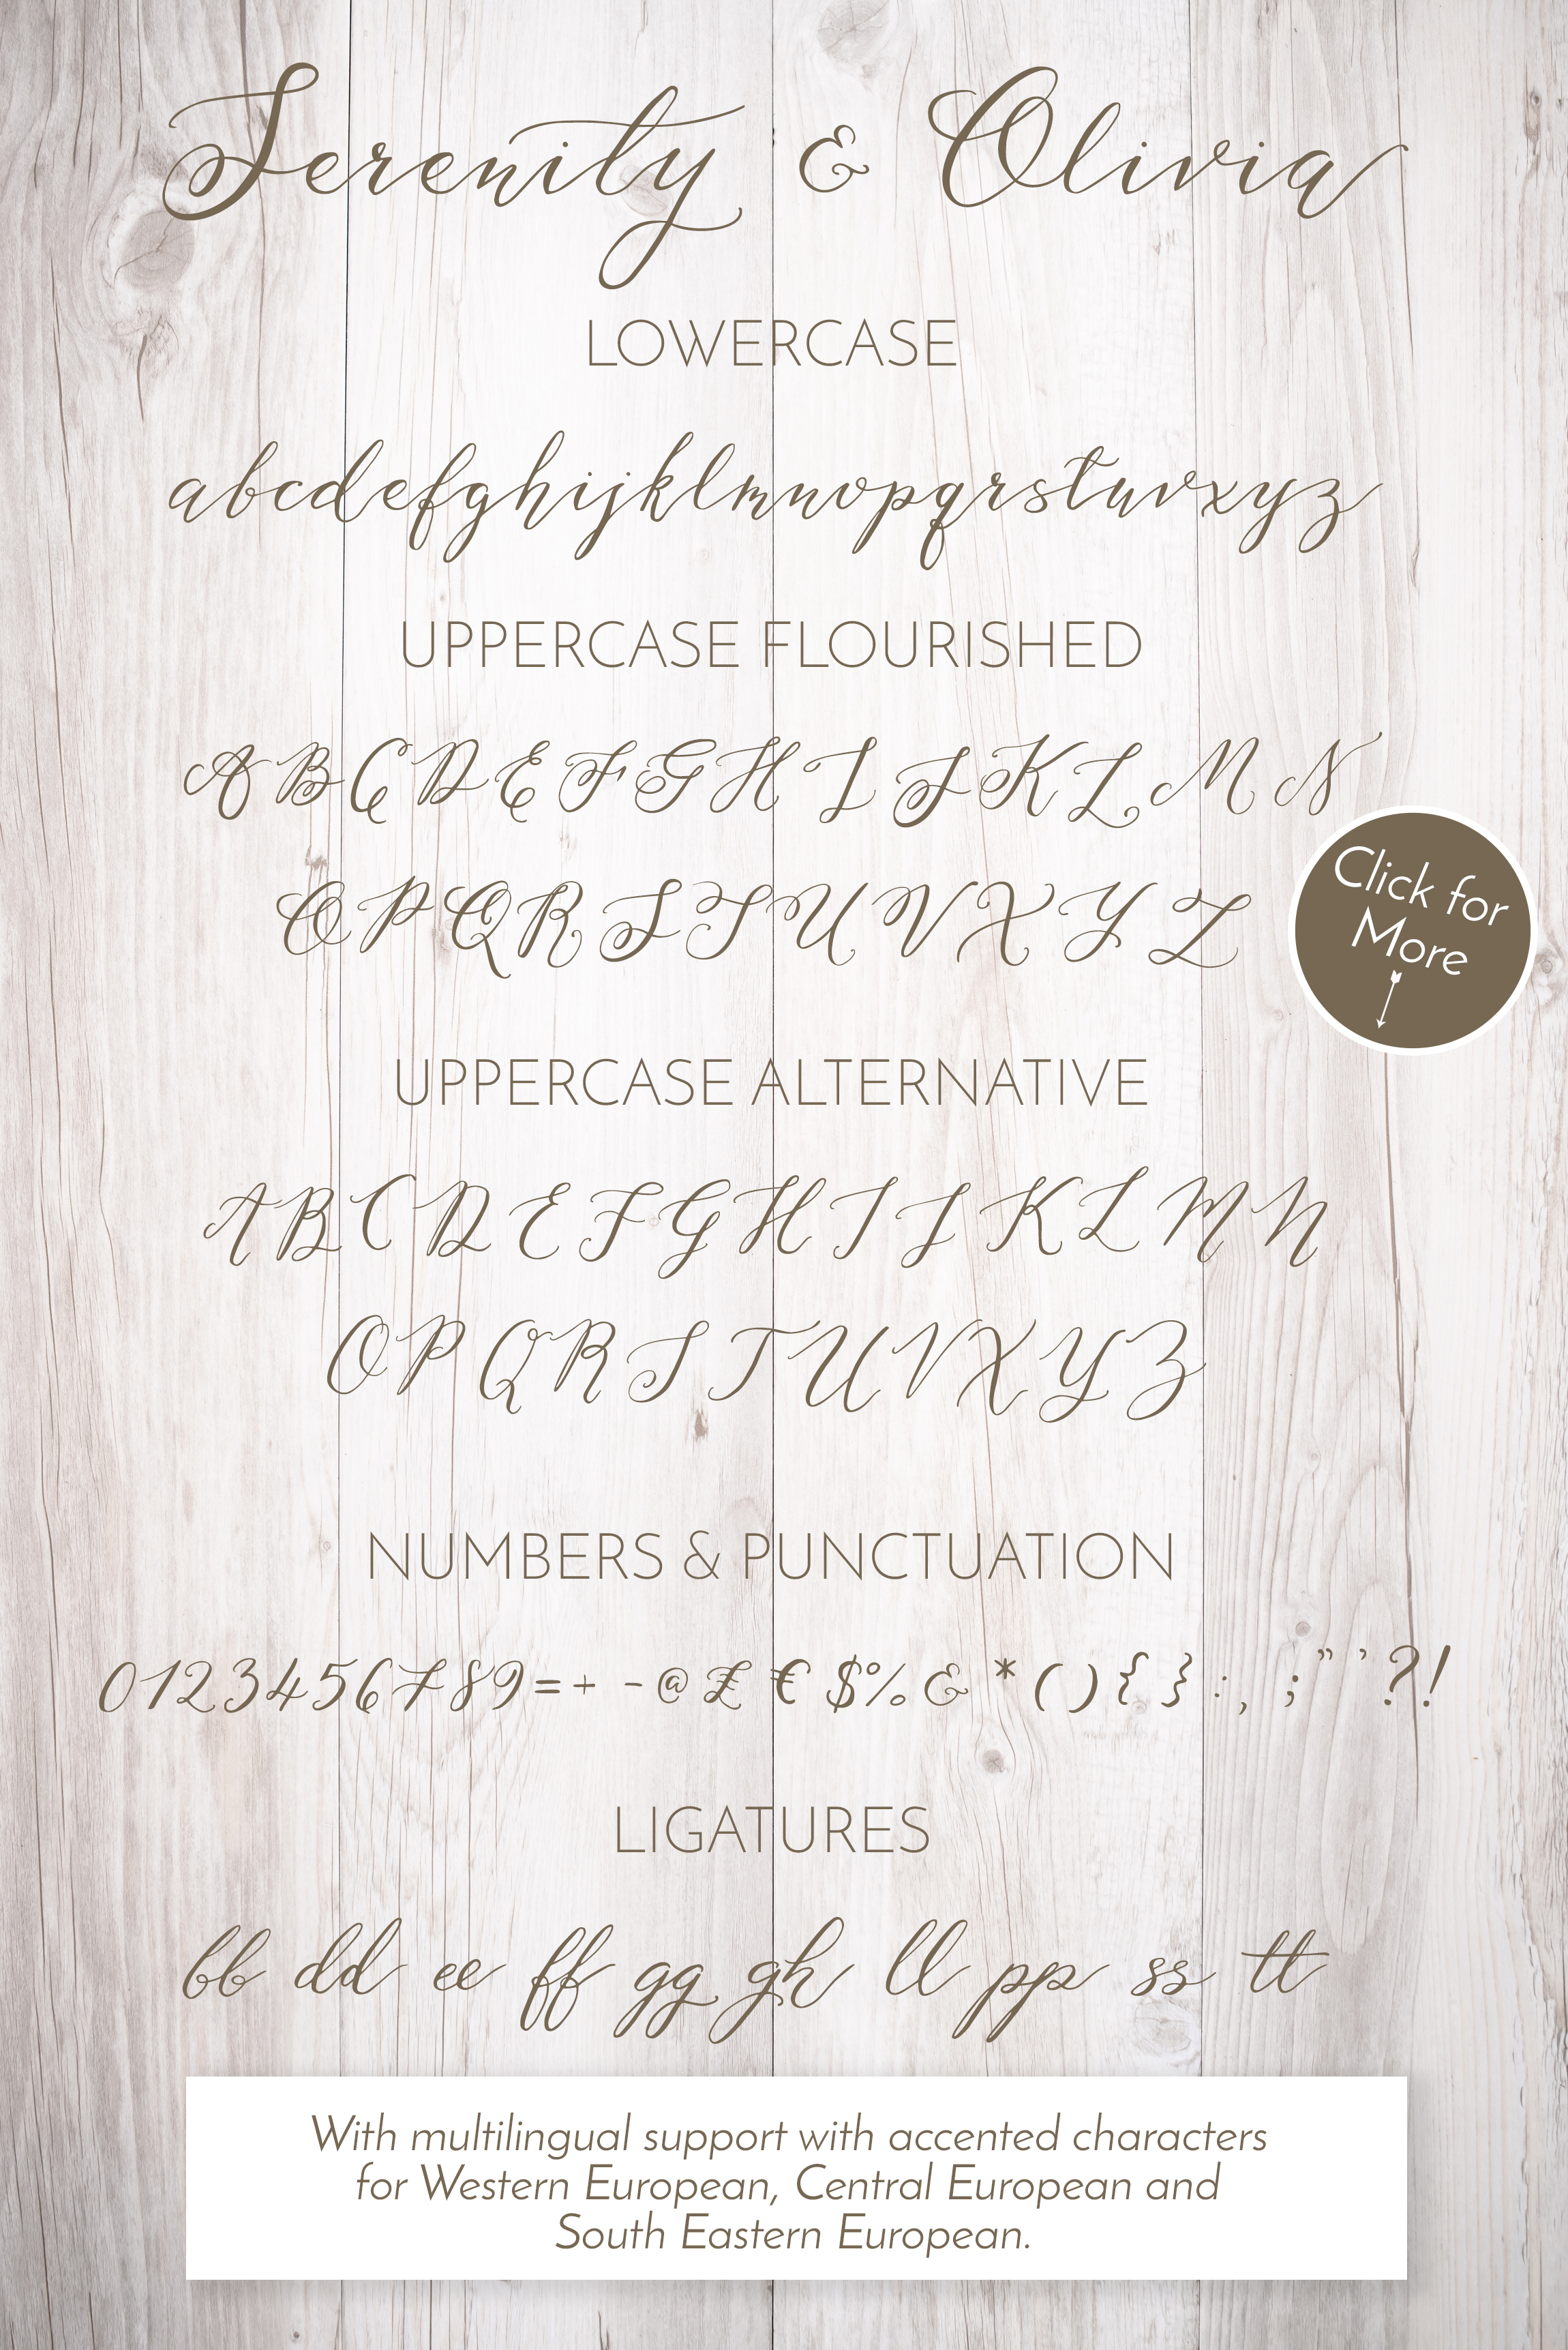 Serenity & Olivia
LOWERCASE
abcdefghijklmnopqrstuvxyz
UPPERCASE FLOURISHED
A B C D E F G H I J K L M N
O P Q R S T U V X Y Z
Click for
More
UPPERCASE ALTERNATIVE
A B C D E F G H I J K L M N
O P Q R S T U V X Y Z
NUMBERS & PUNCTUATION
0123456789=+ -@£ €$%& *(){ }:, ;” ’?!
LIGATURES
bb dd ee ff gg gh ll pp ss tt
With multilingual support with accented characters
for Western European, Central European and
South Eastern European.